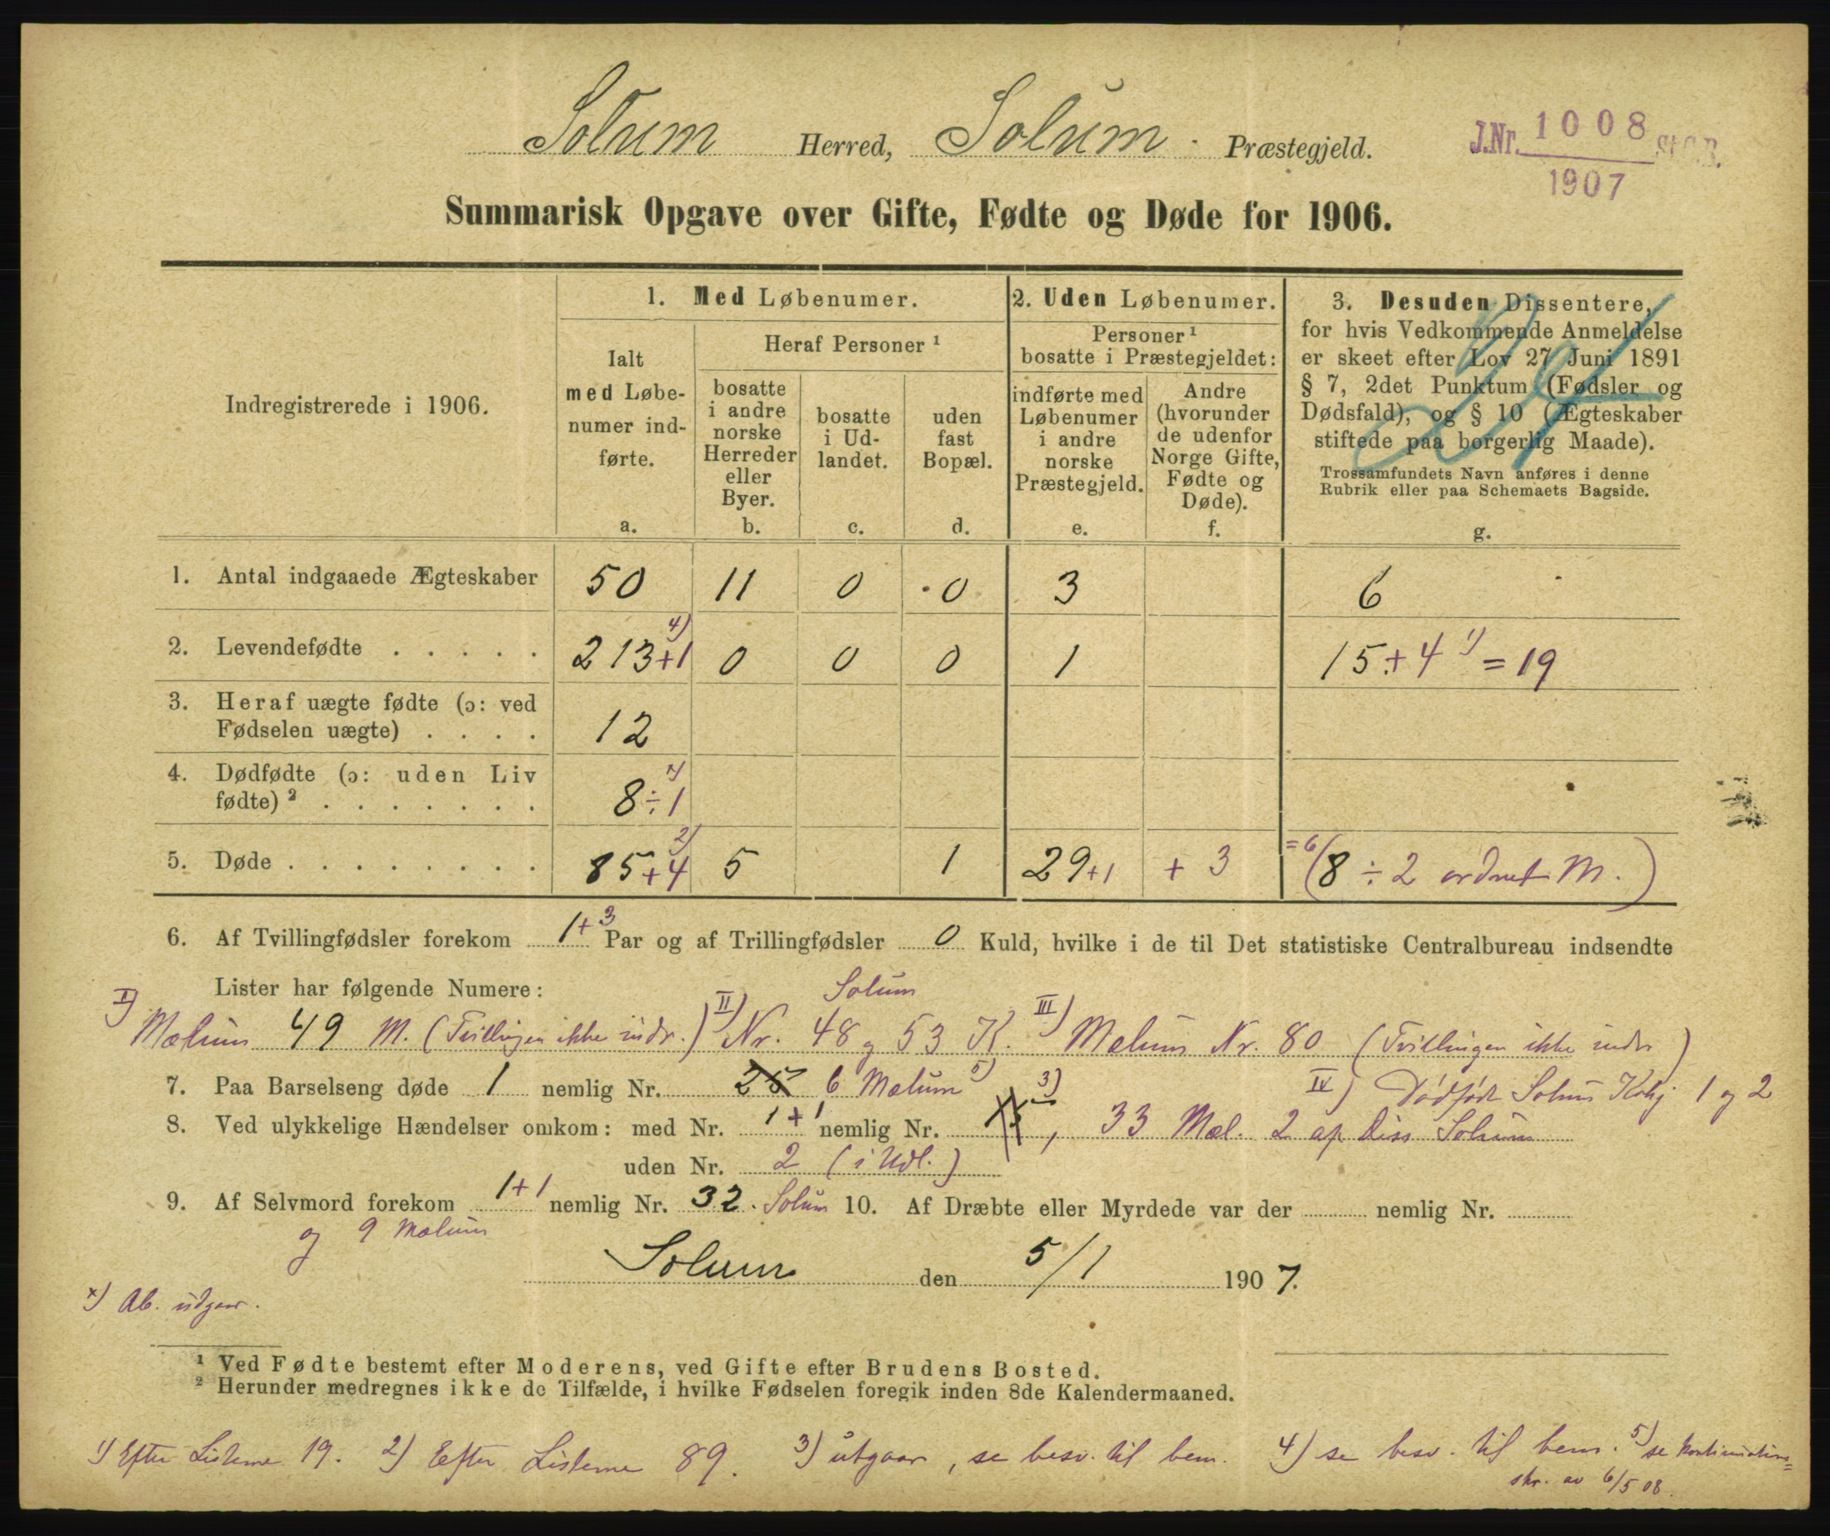 Solum Herred, Solum Præstegjeld.
J.Nr. 1008 St.C.B.
1907
Summarisk Opgave over Gifte, Fødte og Døde for 1906.
Indregistrerede i 1906.
1. Med Løbenumer.
Ialt med Løbenumer indførte.
a.
Heraf Personer ¹
bosatte i andre norske Herreder eller Byer.
b.
bosatte i Udlandet.
c.
uden fast Bopæl.
d.
2. Uden Løbenumer.
Personer ¹ bosatte i Præstegjeldet:
indførte med Løbenumer i andre norske Præstegjeld.
e.
Andre (hvorunder de udenfor Norge Gifte, Fødte og Døde).
f.
3. Desuden Dissentere,
for hvis Vedkommende Anmeldelse
er skeet efter Lov 27 Juni 1891
§ 7, 2det Punktum (Fødsler og
Dødsfald), og § 10 (Ægteskaber
stiftede paa borgerlig Maade).
Trossamfundets Navn anføres i denne
Rubrik eller paa Schemaets Bagside.
g.
1. Antal indgaaede Ægteskaber 50 11 0 0 3 6
2. Levendefødte . . . . . 213+1 4) 0 0 0 1 15+4 1) = 19
3. Heraf uægte fødte (ɔ: ved
Fødselen uægte) . . . . 12
4. Dødfødte (ɔ: uden Liv
fødte) ² . . . . . . . 8÷1 x)
5. Døde . . . . . . . . 85+4 2) 5 1 29+1 +3 =6 (8÷2 ordnet M.)
6. Af Tvillingfødsler forekom 1+3 Par og af Trillingfødsler 0 Kuld, hvilke i de til Det statistiske Centralbureau indsendte
Lister har følgende Numere: Solum
I) Mælum 49 M. (Tvillingen ikke indr.) II) Nr. 48 og 53 K. III) Mælum Nr. 80 (Tvillingen ikke indr)
7. Paa Barselseng døde 1 nemlig Nr. 25 6 Mælum 5) IV) Dødfødt Solum 1 og 2
8. Ved ulykkelige Hændelser omkom: med Nr. 1+1 nemlig Nr. 3), 33 Mæl. 2 af Diss Solum
uden Nr. 2 (i Udl.)
9. Af Selvmord forekom 1+1 nemlig Nr. 32. Solum 10. Af Dræbte eller Myrdede var der nemlig Nr.
og 9 Mælum
Solum den 5/1 1907.
x) Ab. udgaar.
¹ Ved Fødte bestemt efter Moderens, ved Gifte efter Brudens Bosted.
² Herunder medregnes ikke de Tilfælde, i hvilke Fødselen foregik inden 8de Kalendermaaned.
1) Efter Listerne 19. 2) Efter Listerne 89. 3) utgaar, se besv. til bem. 4) se besv. til bem. 5) se kontinuations=
skr. av 6/5 08.